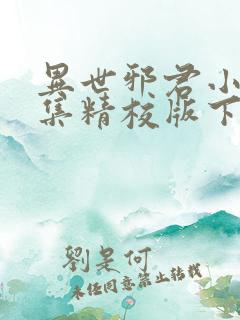 異世邪君小
集精校版下
劉是何
未经同意禁止转载